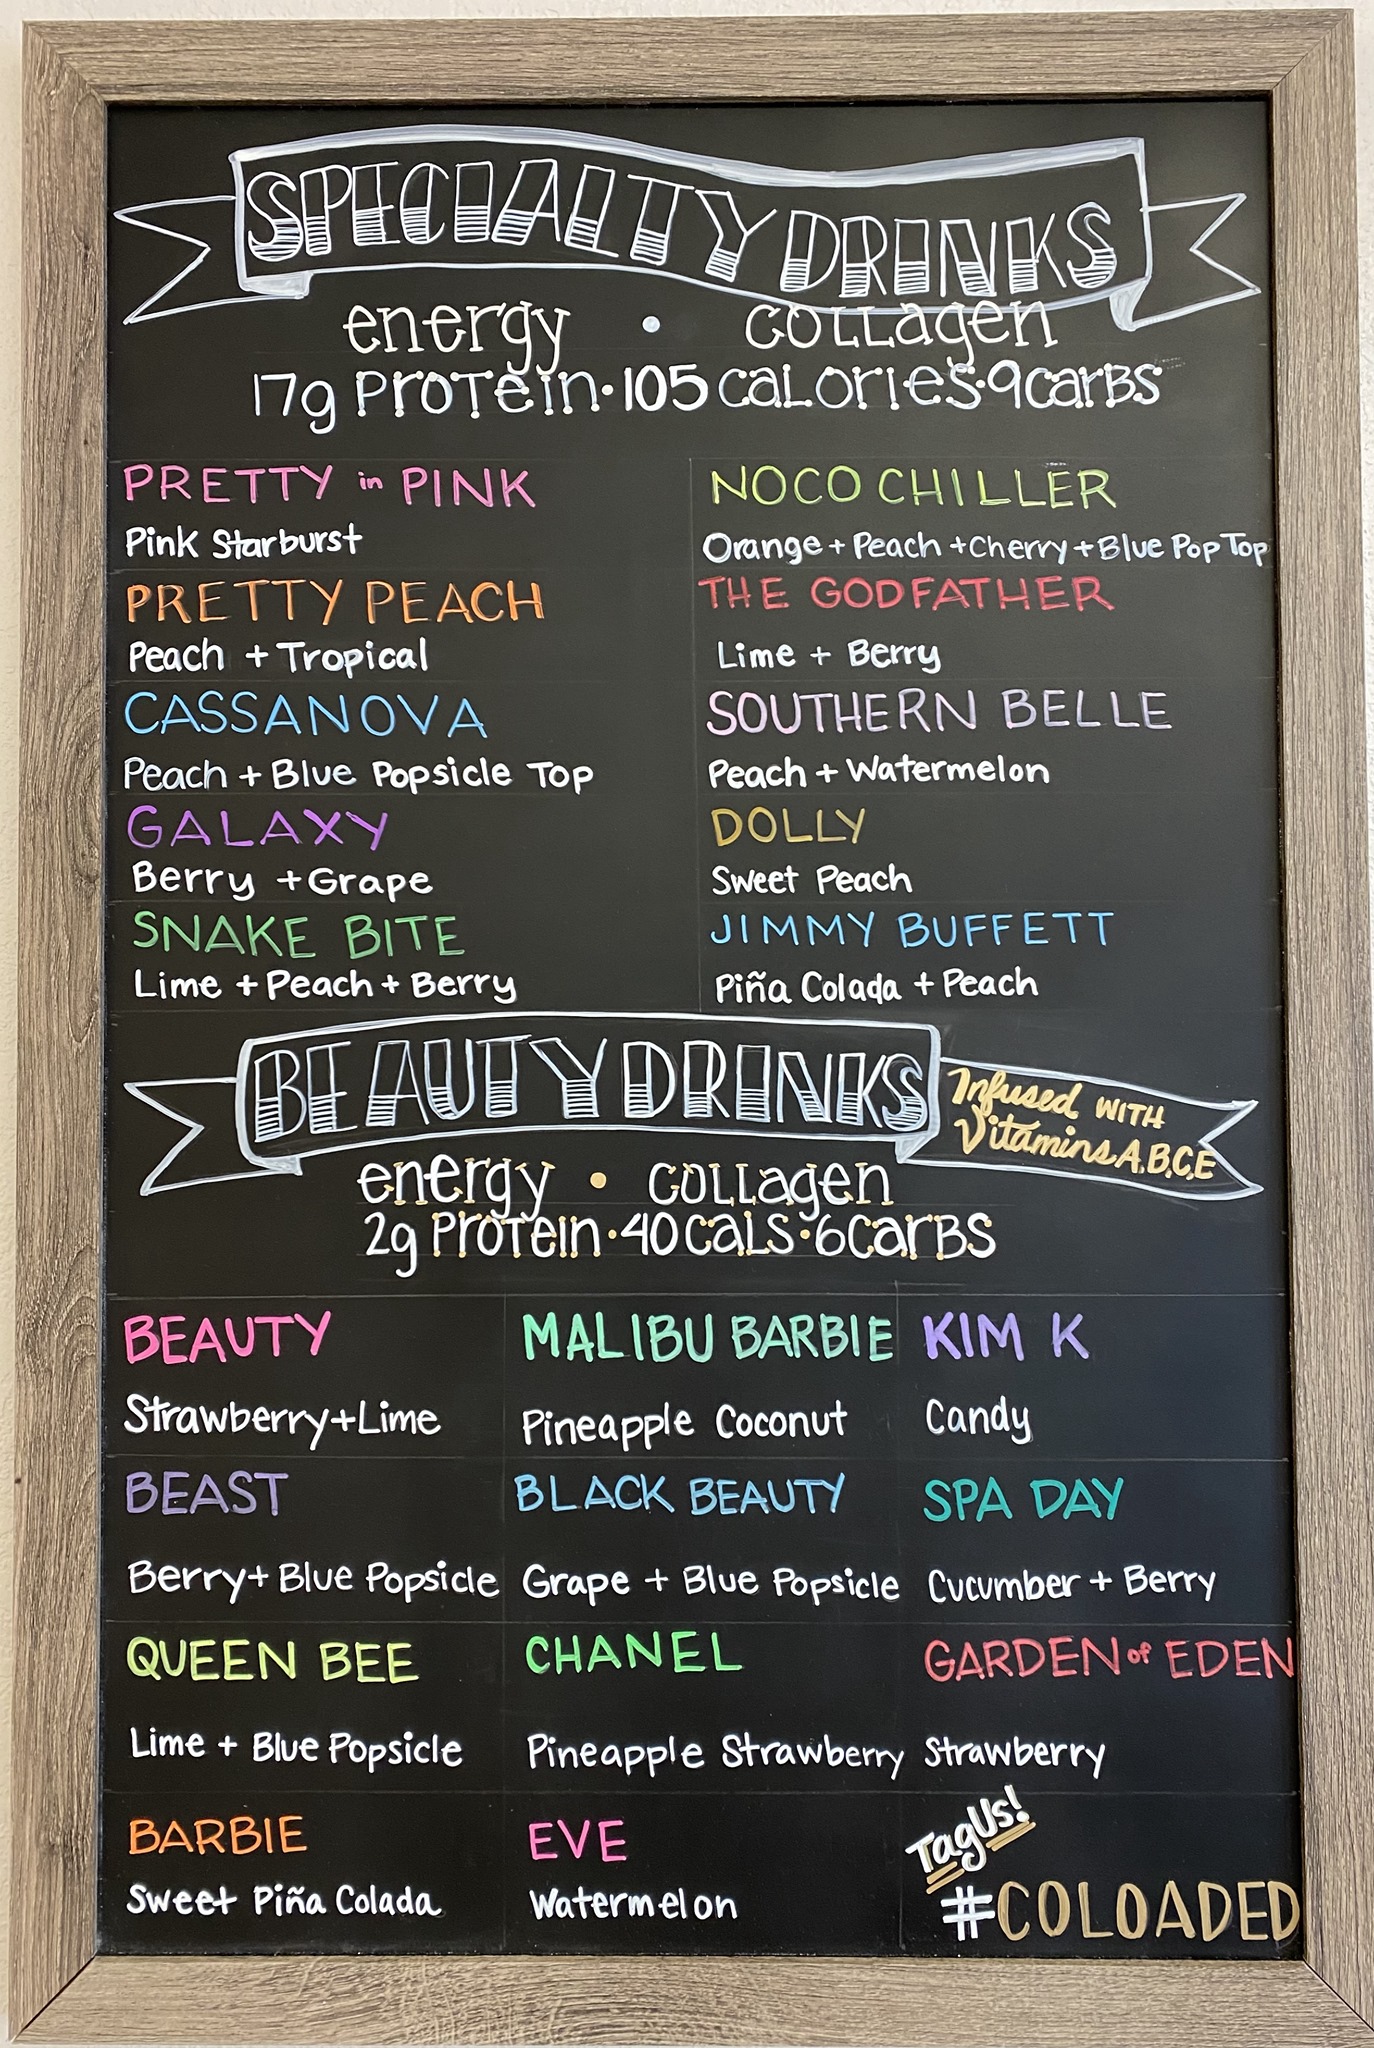 SPECIALTY DRINKS
energy • collagen
17g Protein • 105 calories • 9carbs
PRETTY in PINK
Pink Starburst
PRETTY PEACH
Peach + Tropical
CASSANOVA
Peach + Blue Popsicle Top
GALAXY
Berry + Grape
SNAKE BITE
Lime + Peach + Berry
NOCO CHILLER
Orange + Peach + Cherry + Blue Pop Top
THE GODFATHER
Lime + Berry
SOUTHERN BELLE
Peach + Watermelon
DOLLY
Sweet Peach
JIMMY BUFFETT
Piña Colada + Peach
BEAUTY DRINKS
Infused WITH
Vitamins A,B,C,E
energy • collagen
2g Protein • 40 cals • 6carbs
BEAUTY
Strawberry + Lime
BEAST
Berry + Blue Popsicle
QUEEN BEE
Lime + Blue Popsicle
BARBIE
Sweet Piña Colada
MALIBU BARBIE
Pineapple Coconut
BLACK BEAUTY
Grape + Blue Popsicle
CHANEL
Pineapple Strawberry
EVE
Watermelon
KIM K
Candy
SPA DAY
Cucumber + Berry
GARDEN of EDEN
Strawberry
Tag Us!
#COLOADED